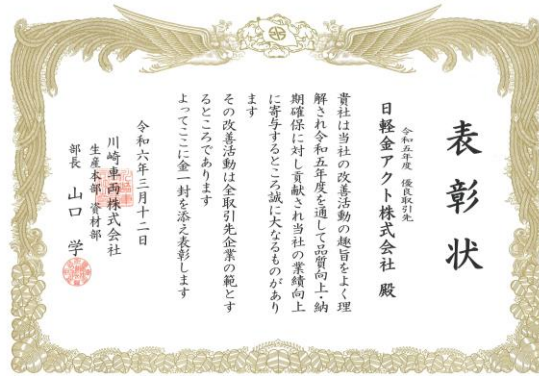 表彰状
令和五年度 優良取引先
日軽金アクト株式会社 殿
貴社は当社の改善活動の趣旨をよく理
解され令和五年度を通して品質向上・納
期確保に対し貢献され当社の業績向上
に寄与するところ誠に大なるものがあり
ます
その改善活動は全取引先企業の範とす
るところであります
よってここに金一封を添え表彰します
令和六年三月十二日
川崎車両株式会社
生産本部 資材部
部長 山口 学